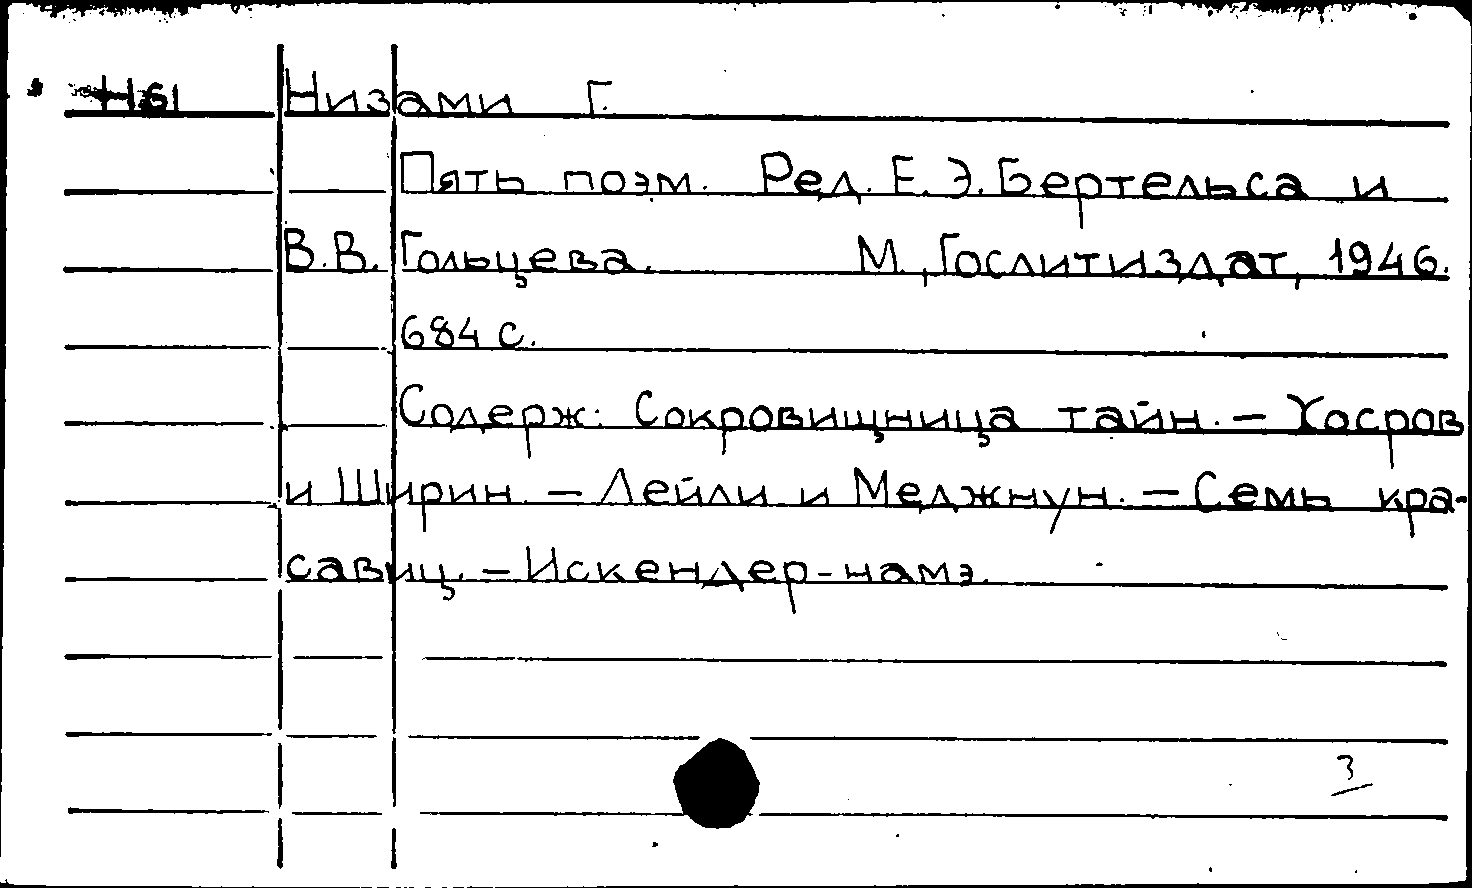 Н61 Низами Г.
Пять поэм. Ред. Е. Э. Бертельса и
В.В. Гольцева. М., Гослитиздат, 1946.
684 с.
Содерж: Сокровищница тайн. – Хосров
и Ширин. – Лейли и Меджнун. – Семь кра-
савиц. – Искендер-намэ.
3